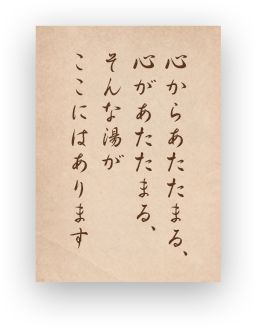 心からあたたまる、
心があたたまる、
そんな湯が
ここにはあります